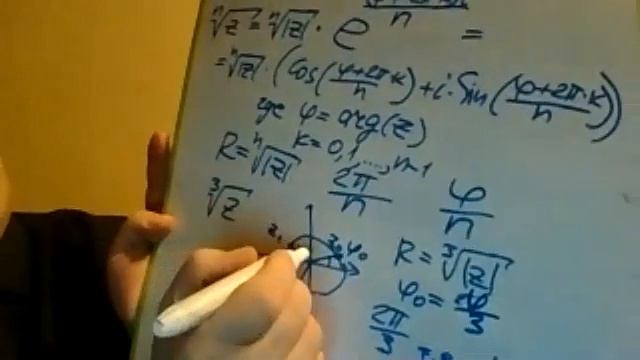 ⁿ√z = ⁿ√|z| · e =
= ⁿ√|z| · (Cos(φ+2π·k/n) + i·Sin(φ+2π·k/n))
где φ = arg(z)
R = ⁿ√|z| k = 0,1,..., n-1
2π/n φ/n
³√z
z₀ φ₀
R = ³√|z|
φ₀ = φ/3
2π/3